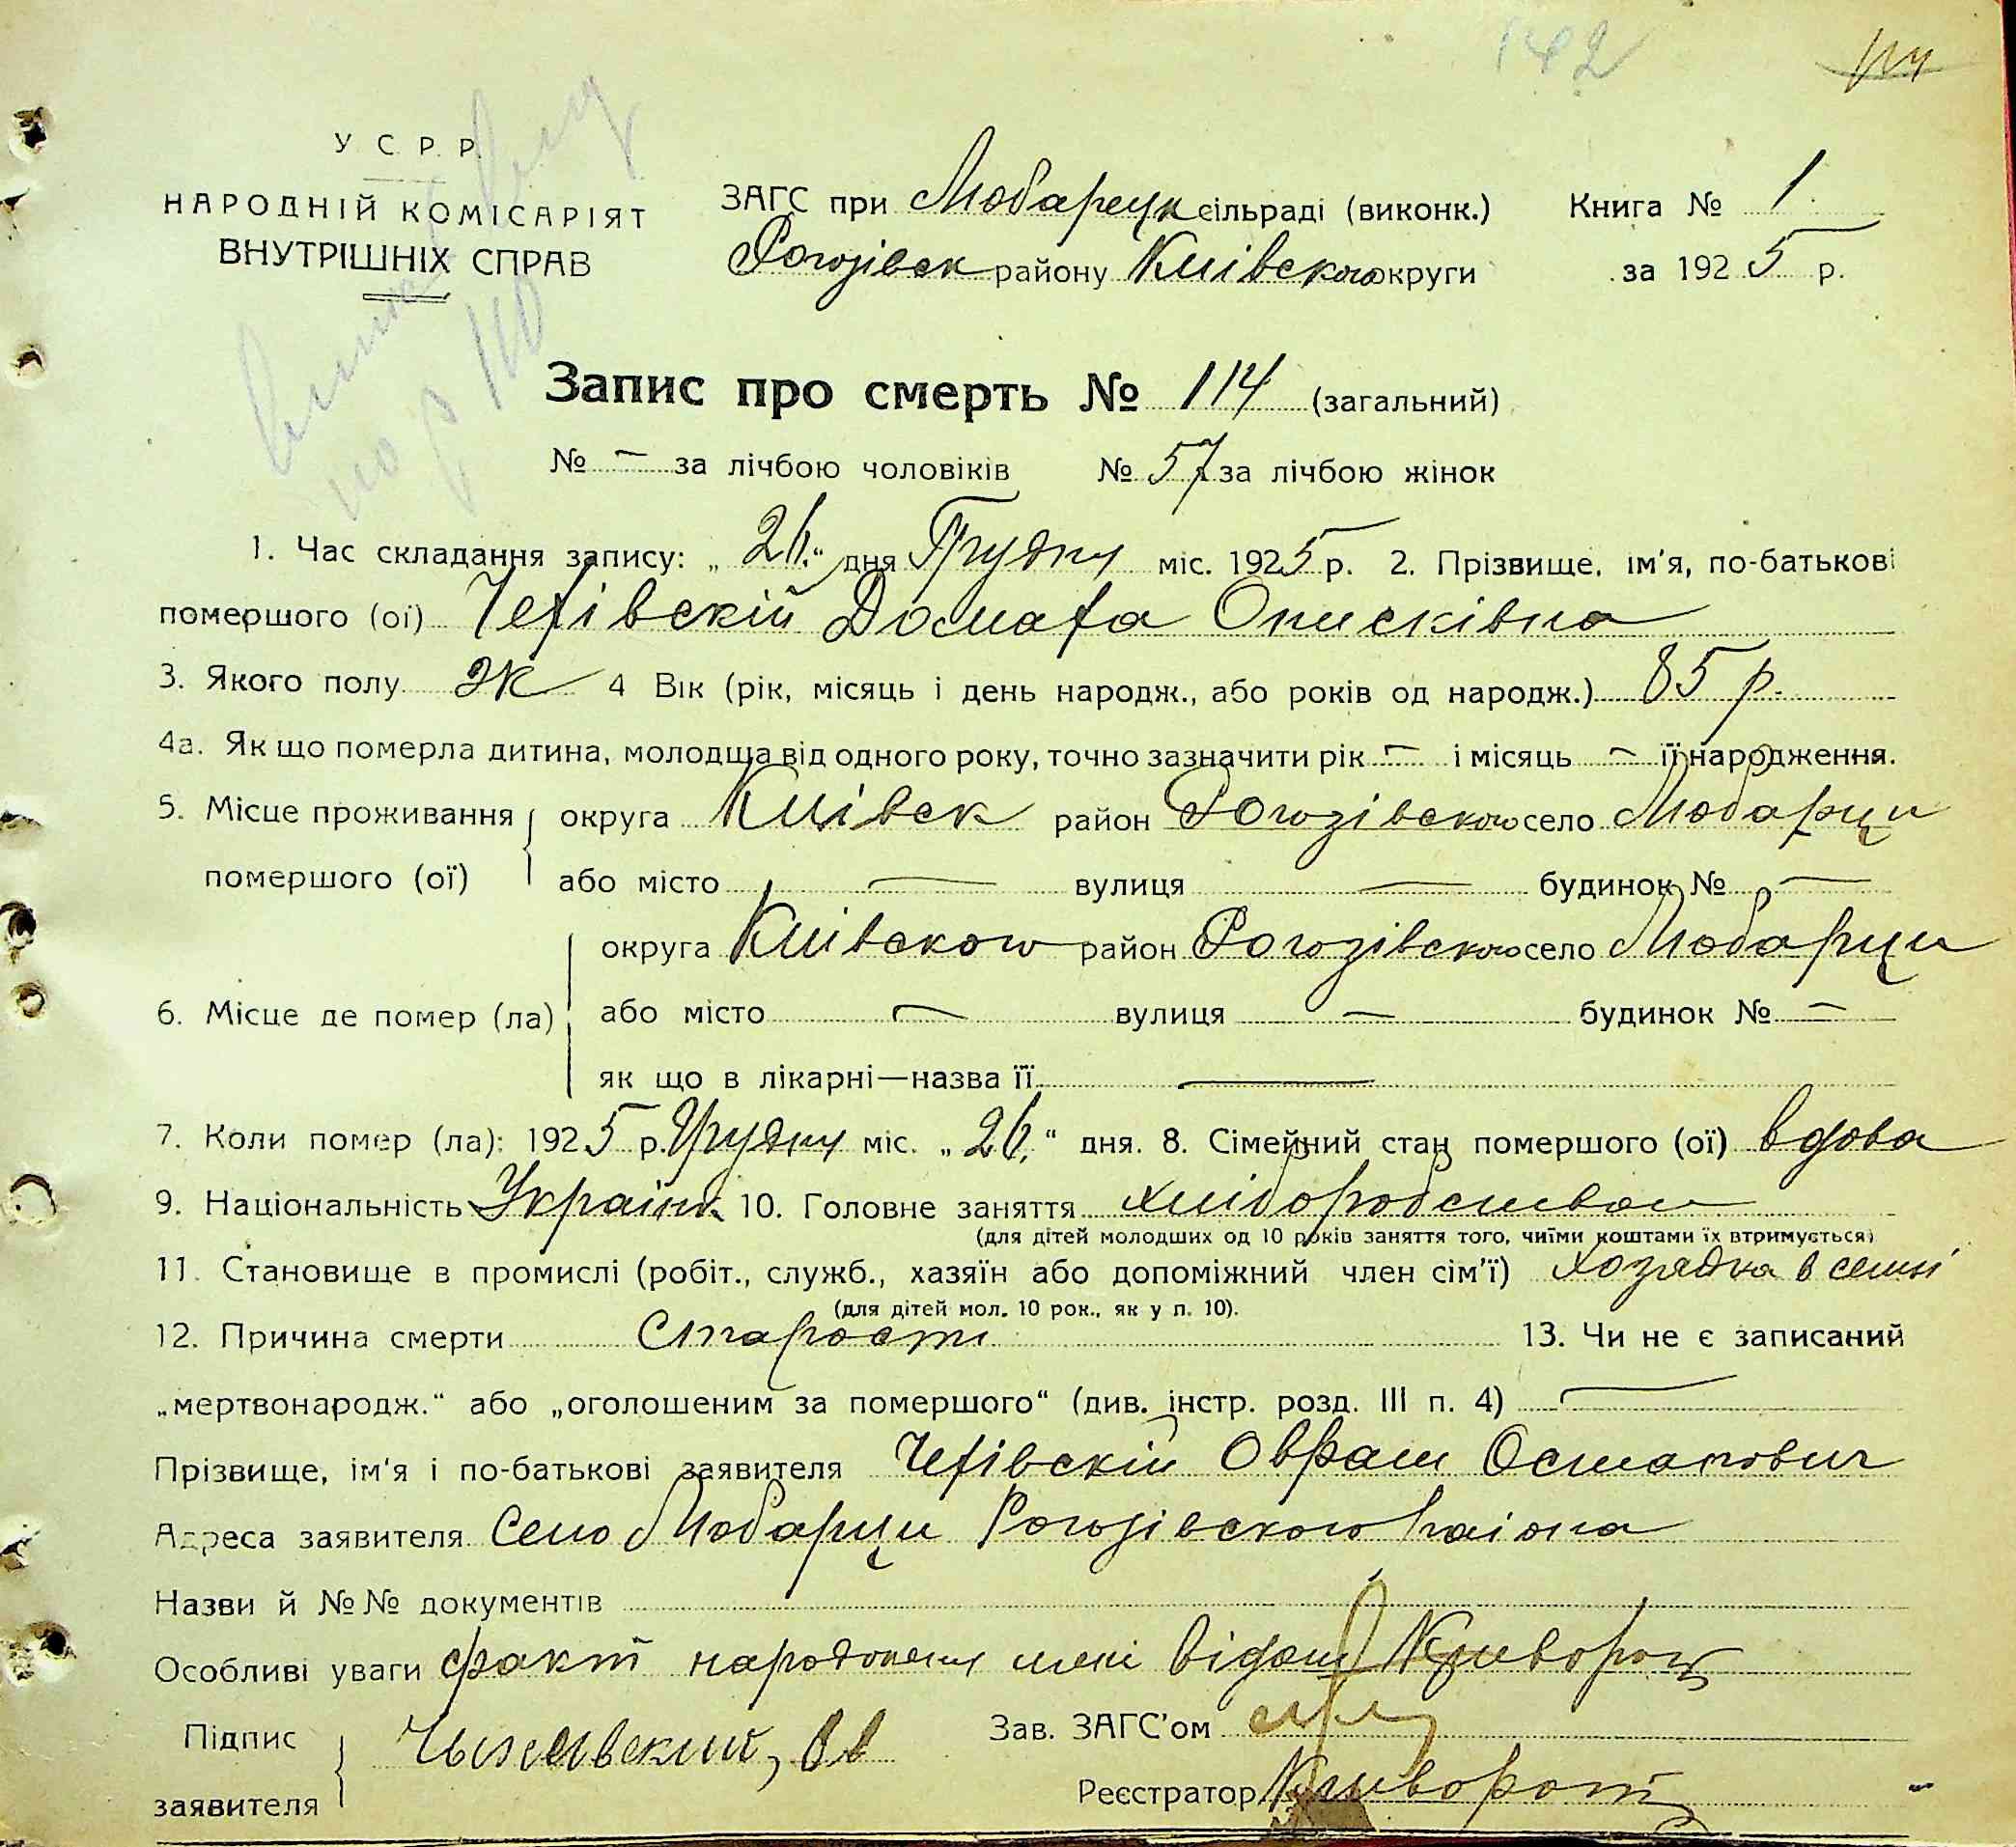 142
114
У С. Р. Р.
НАРОДНІЙ КОМІСАРІЯТ
ВНУТРІШНІХ СПРАВ
ЗАГС при Любарецк сільраді (виконк.)
Рогозівск району Київского округи
Книга № 1.
за 1925 р.
Запис про смерть № 114 (загальний)
№ — за лічбою чоловіків № 57 за лічбою жінок
1. Час складання запису: „ 26.“ дня Грудня міс. 1925 р. 2. Прізвище, ім'я, по-батькові
помершого (ої) Домаха
3. Якого полу ж 4 Вік (рік, місяць і день народж., або років од народж.) 85 р.
4а. Як що померла дитина, молодща від одного року, точно зазначити рік — і місяць — її народження.
5. Місце проживання округа Київск район Рогозівского село Любарци
помершого (ої) або місто — вулиця — будинок № —
округа Київского район Рогозівского село Любарци
6. Місце де помер (ла) або місто — вулиця — будинок № —
як що в лікарні—назва її —
7. Коли помер (ла): 1925 р. Грудня міс. „ 26.“ дня. 8. Сімейний стан помершого (ої) вдова
9. Національність Україн. 10. Головне заняття хліборобством
(для дітей молодших од 10 років заняття того, чиїми коштами їх втримується)
11. Становище в промислі (робіт., служб., хазяїн або допоміжний член сім'ї) в семьі
(для дітей мол. 10 рок., як у п. 10).
12. Причина смерти Старости 13. Чи не є записаний
„мертвонародж.“ або „оголошеним за помершого“ (див. інстр. розд. III п. 4) —
Прізвище, ім'я і по-батькові заявителя Оврам Остапович
Адреса заявителя Село Любарци Рогозівского раіона
Назви й №№ документів
Особливі уваги факт мені Криворот
Підпис
заявителя
Зав. ЗАГС'ом
Реєстратор Криворот